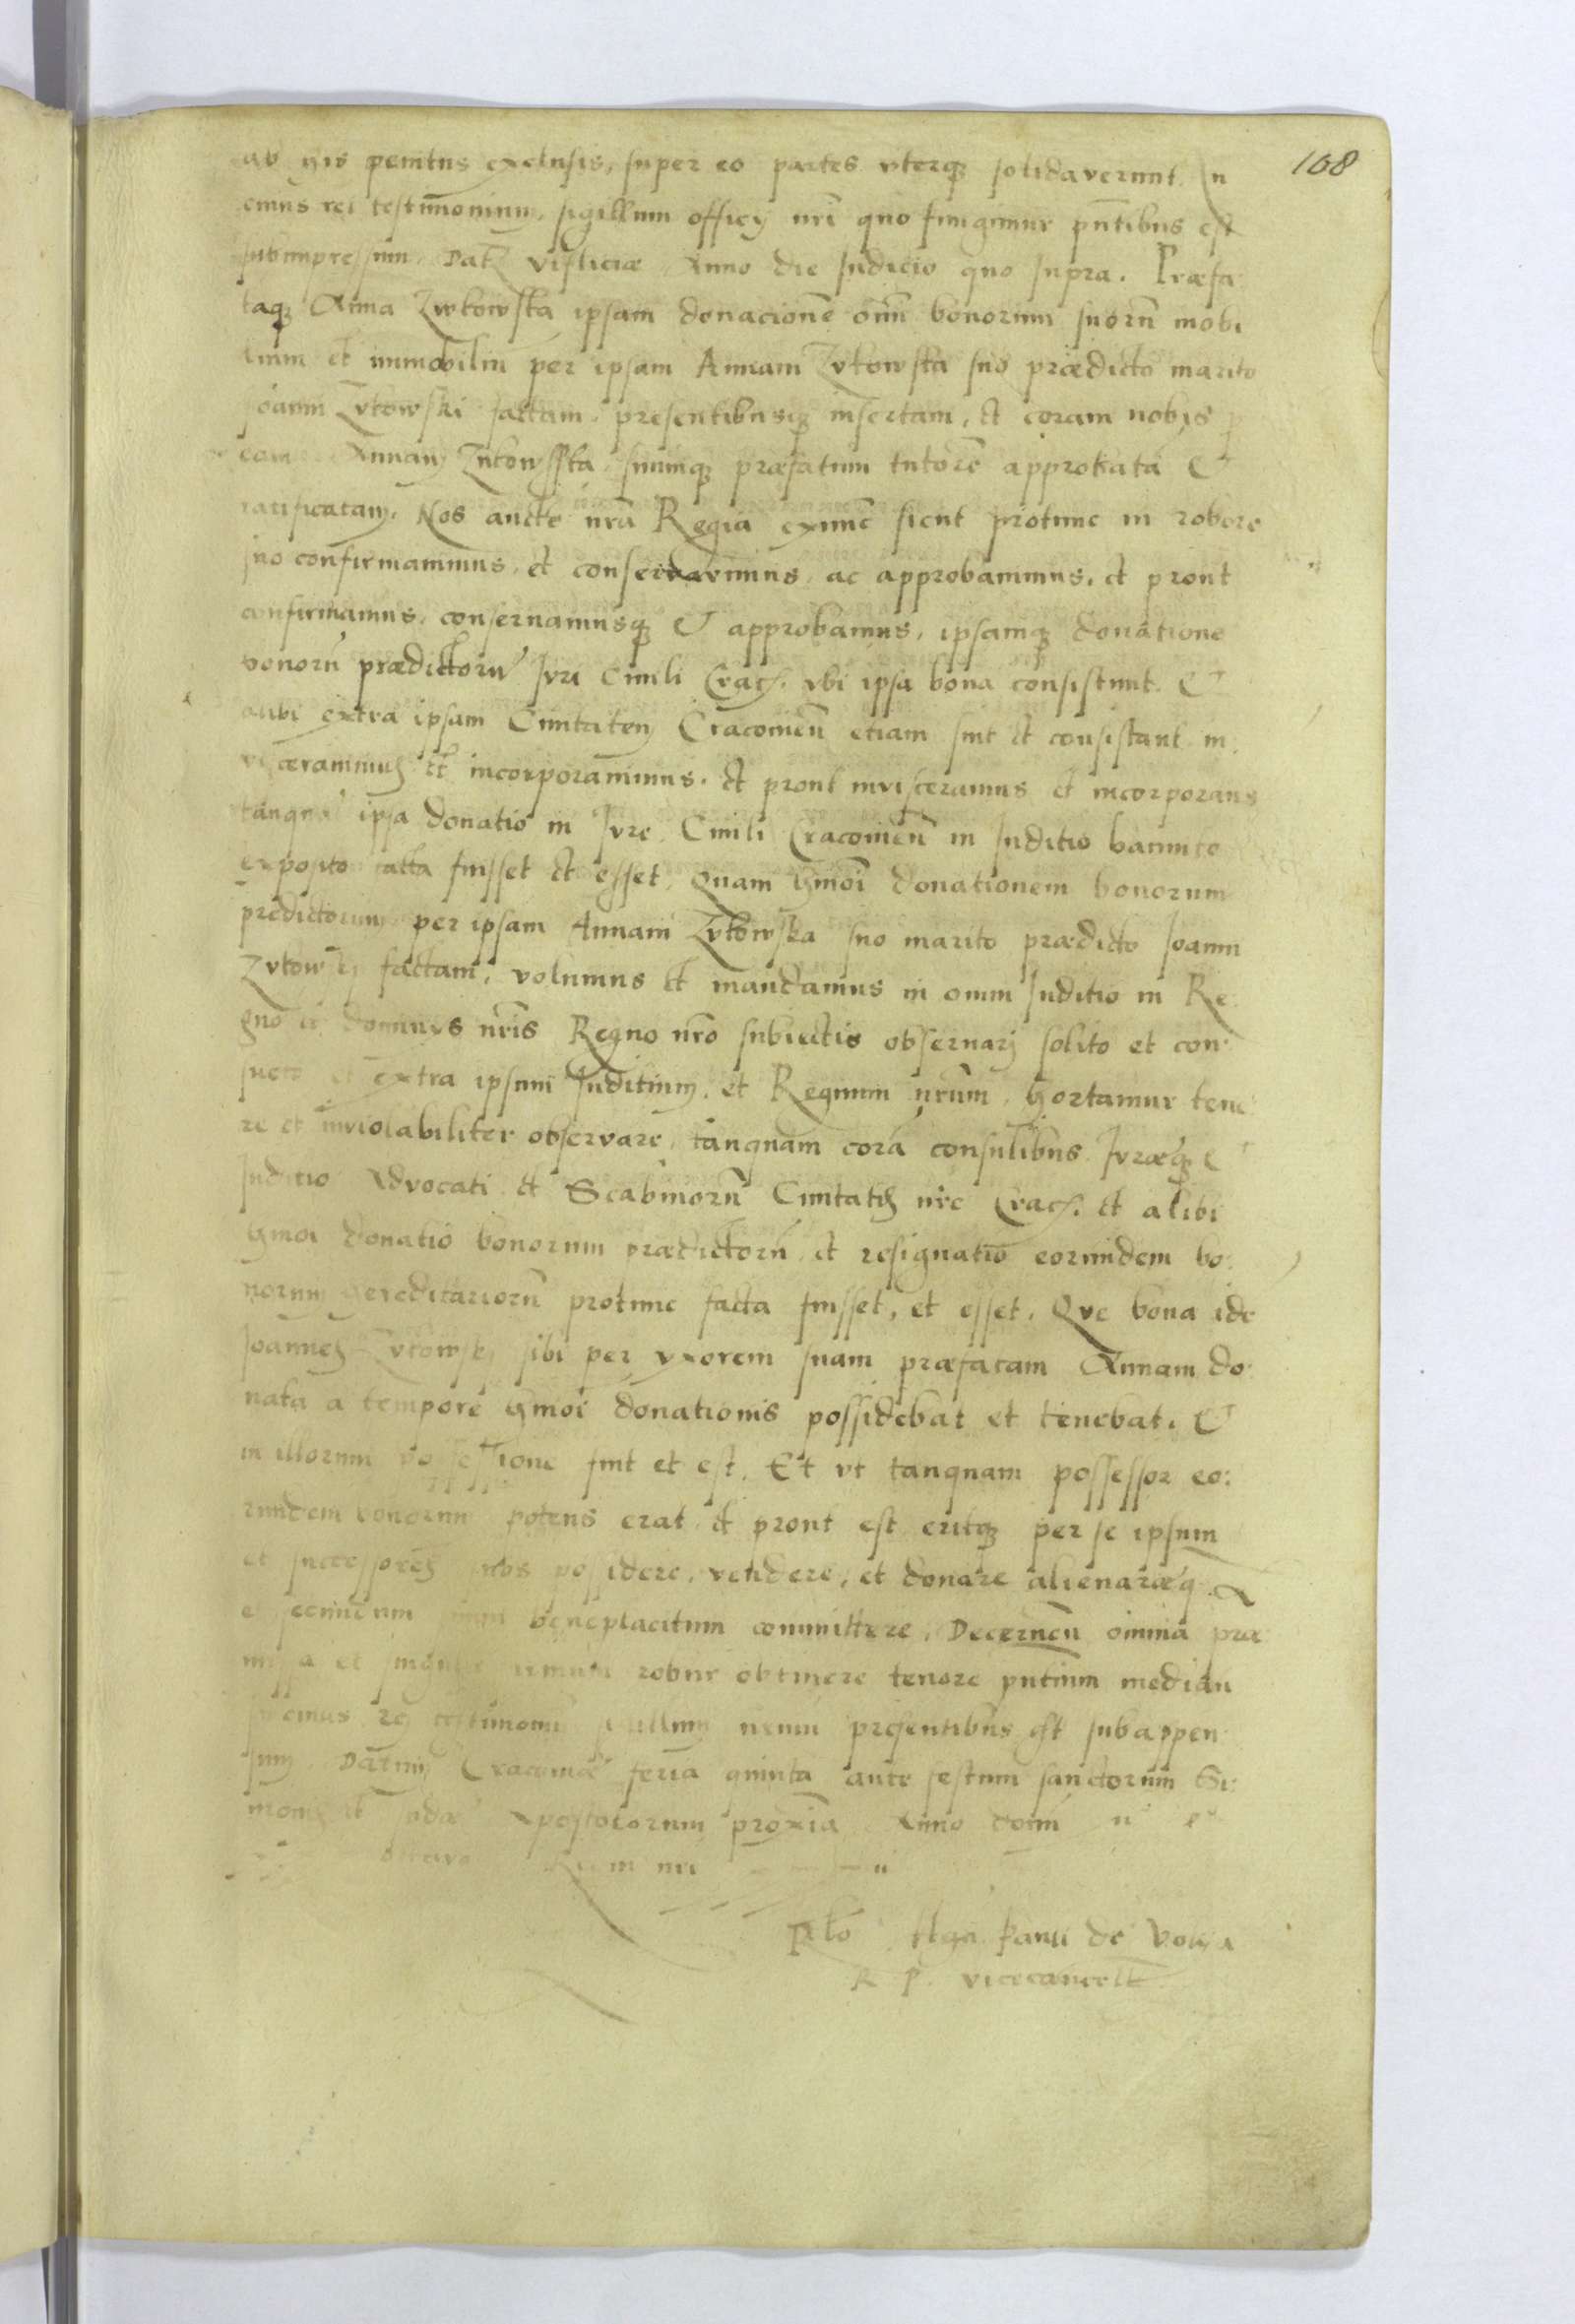 108
ab ijs penitus exclusis, super eo partes uterq3 solidaverunt. In
cuius rei testimonium, sigillum officij nri quo fungimur pntibus est
subimpressum. Dat3 Visliciæ Anno die Iudicio quo supra. Præfa
taq3 Anna Zvtowska ipsam donacione omn bonorum suoru mobi
lium et immobiliu per ipsam Annam Zvtowska suo prædicto marito
Ioanni Zvtowski factam, presentibusq3 insertam, et coram nobis p
eam Annam Zvtowsska suumq3 præfatum tutore approbata et
ratificatam. Nos aucte nra Regia exnunc sicut protunc in robore
suo confirmavimus, et conservavimus, ac approbavimus, et prout
confirmamus, conservamusq3 et approbamus, ipsamq3 donatione
bonoru prædictoru Iuri Civili Crac. vbi ipsa bona consistunt. Et
alibi extra ipsam Civitatem Cracovien etiam sint et consistant in
visceravimus et incorporavimus. et prout invisceramus et incorporams
tanqua ipsa donatio in Iure Civili Cracovien in Iuditio bannito
exposito facta fuisset et esset. Quam hmoi donationem bonorum
predictorum per ipsam Annam Zvtowska suo marito prædicto Ioanni
Zvtowskj factam, volumus et mandamus in omni Iuditio in Re
gno et dominys nris Regno nro subiectis observarj solito et con
sueto et extra ipsum Iuditium, et Regnum nrum, hortamur tene
re et inviolabiliter observare, tanquam cora consulibus Iuræq3 et
Iuditio Advocati et Scabinoru Civitatis nre Crac. et alibi
hmoi donatio bonorum prædictoru et resignatio eorundem bo
norum hereditarioru protunc facta fuisset, et esset. Que bona ide
Ioannes Zvtowskj sibi per vxorem suam præfatam Annam do
nata a tempore hmoi donationis possidebat et tenebat. Et
in illorum possessione fuit et est. Et vt tanquam possessor eo:
rundem bonorum potens erat et prout est eritq3 per se ipsum
et successores suos possidere, vendere, et donare alienaræq3
et secundum suum beneplacitum committere. Decernen omnia præ
missa et singula firmum robur obtinere tenore pntium median
In cuius rej testimoniu sigillum nrum presentibus est subappen
sum. Datum Cracoviæ feria quinta ante festum sanctorum Si:
monis et Iudæ Apostolorum proxia Anno domi
octavo Regni nri
de
R P. vicecancell